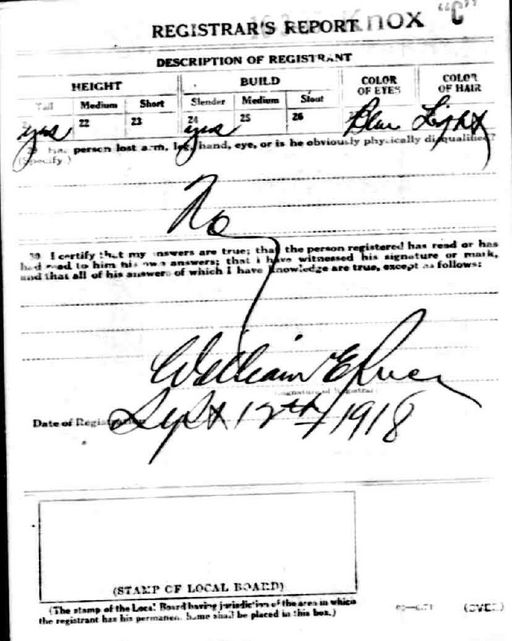 REGISTRAR'S REPORT Knox "C"
DESCRIPTION OF REGISTRANT
HEIGHT BUILD COLOR OF EYES COLOR OF HAIR
Tall Medium Short Slender Medium Stout
21 22 23 24 25 26
yes yes Blue Light
29 Has person lost arm, leg, hand, eye, or is he obviously physically disqualified?
(Specify.)
No
30 I certify that my answers are true; that the person registered has read or has
had read to him his own answers; that I have witnessed his signature or mark,
and that all of his answers of which I have knowledge are true, except as follows:
William E
Signature of Registrar
Date of Registration Sept 12th/1918
(STAMP OF LOCAL BOARD)
(The stamp of the Local Board having jurisdiction of the area in which
the registrant has his permanent home shall be placed in this box.)
(OVER)